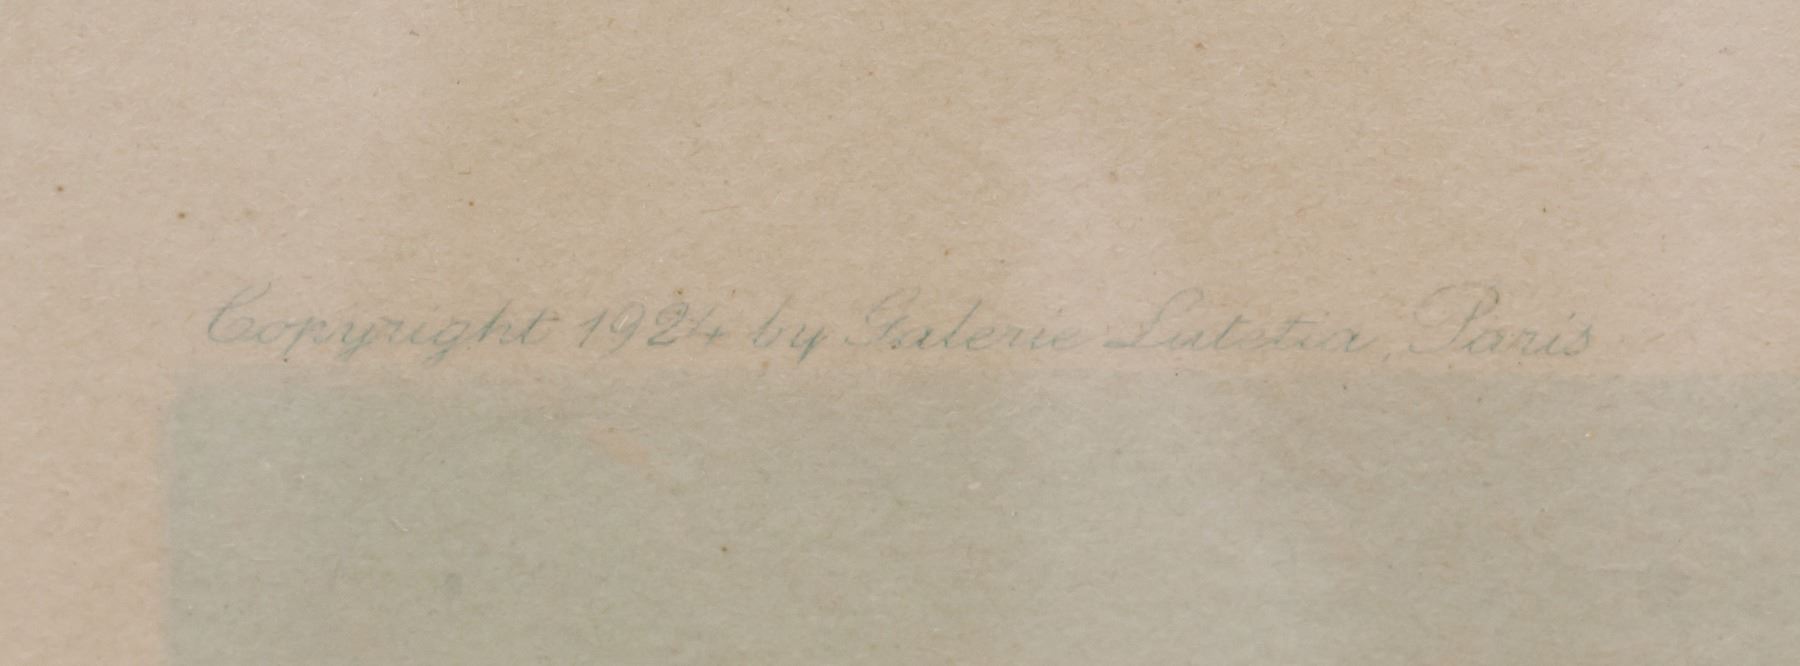 Copyright 1924 by Galerie Lutetia, Paris